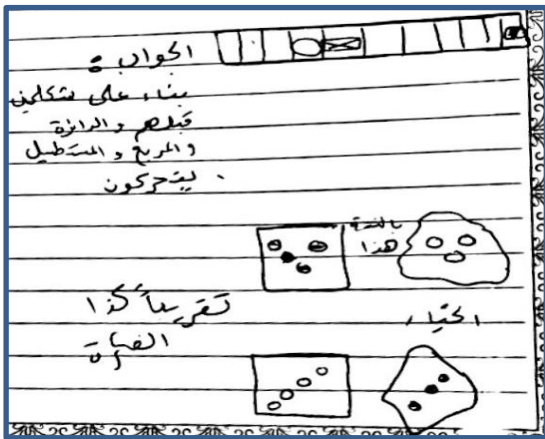 الجواب :
بناء على شكلين
قبلهم والدائرة
والمربع والمستطيل
يتحركون .
بالنسبة
هذا
تقريباً كذا
اختيار